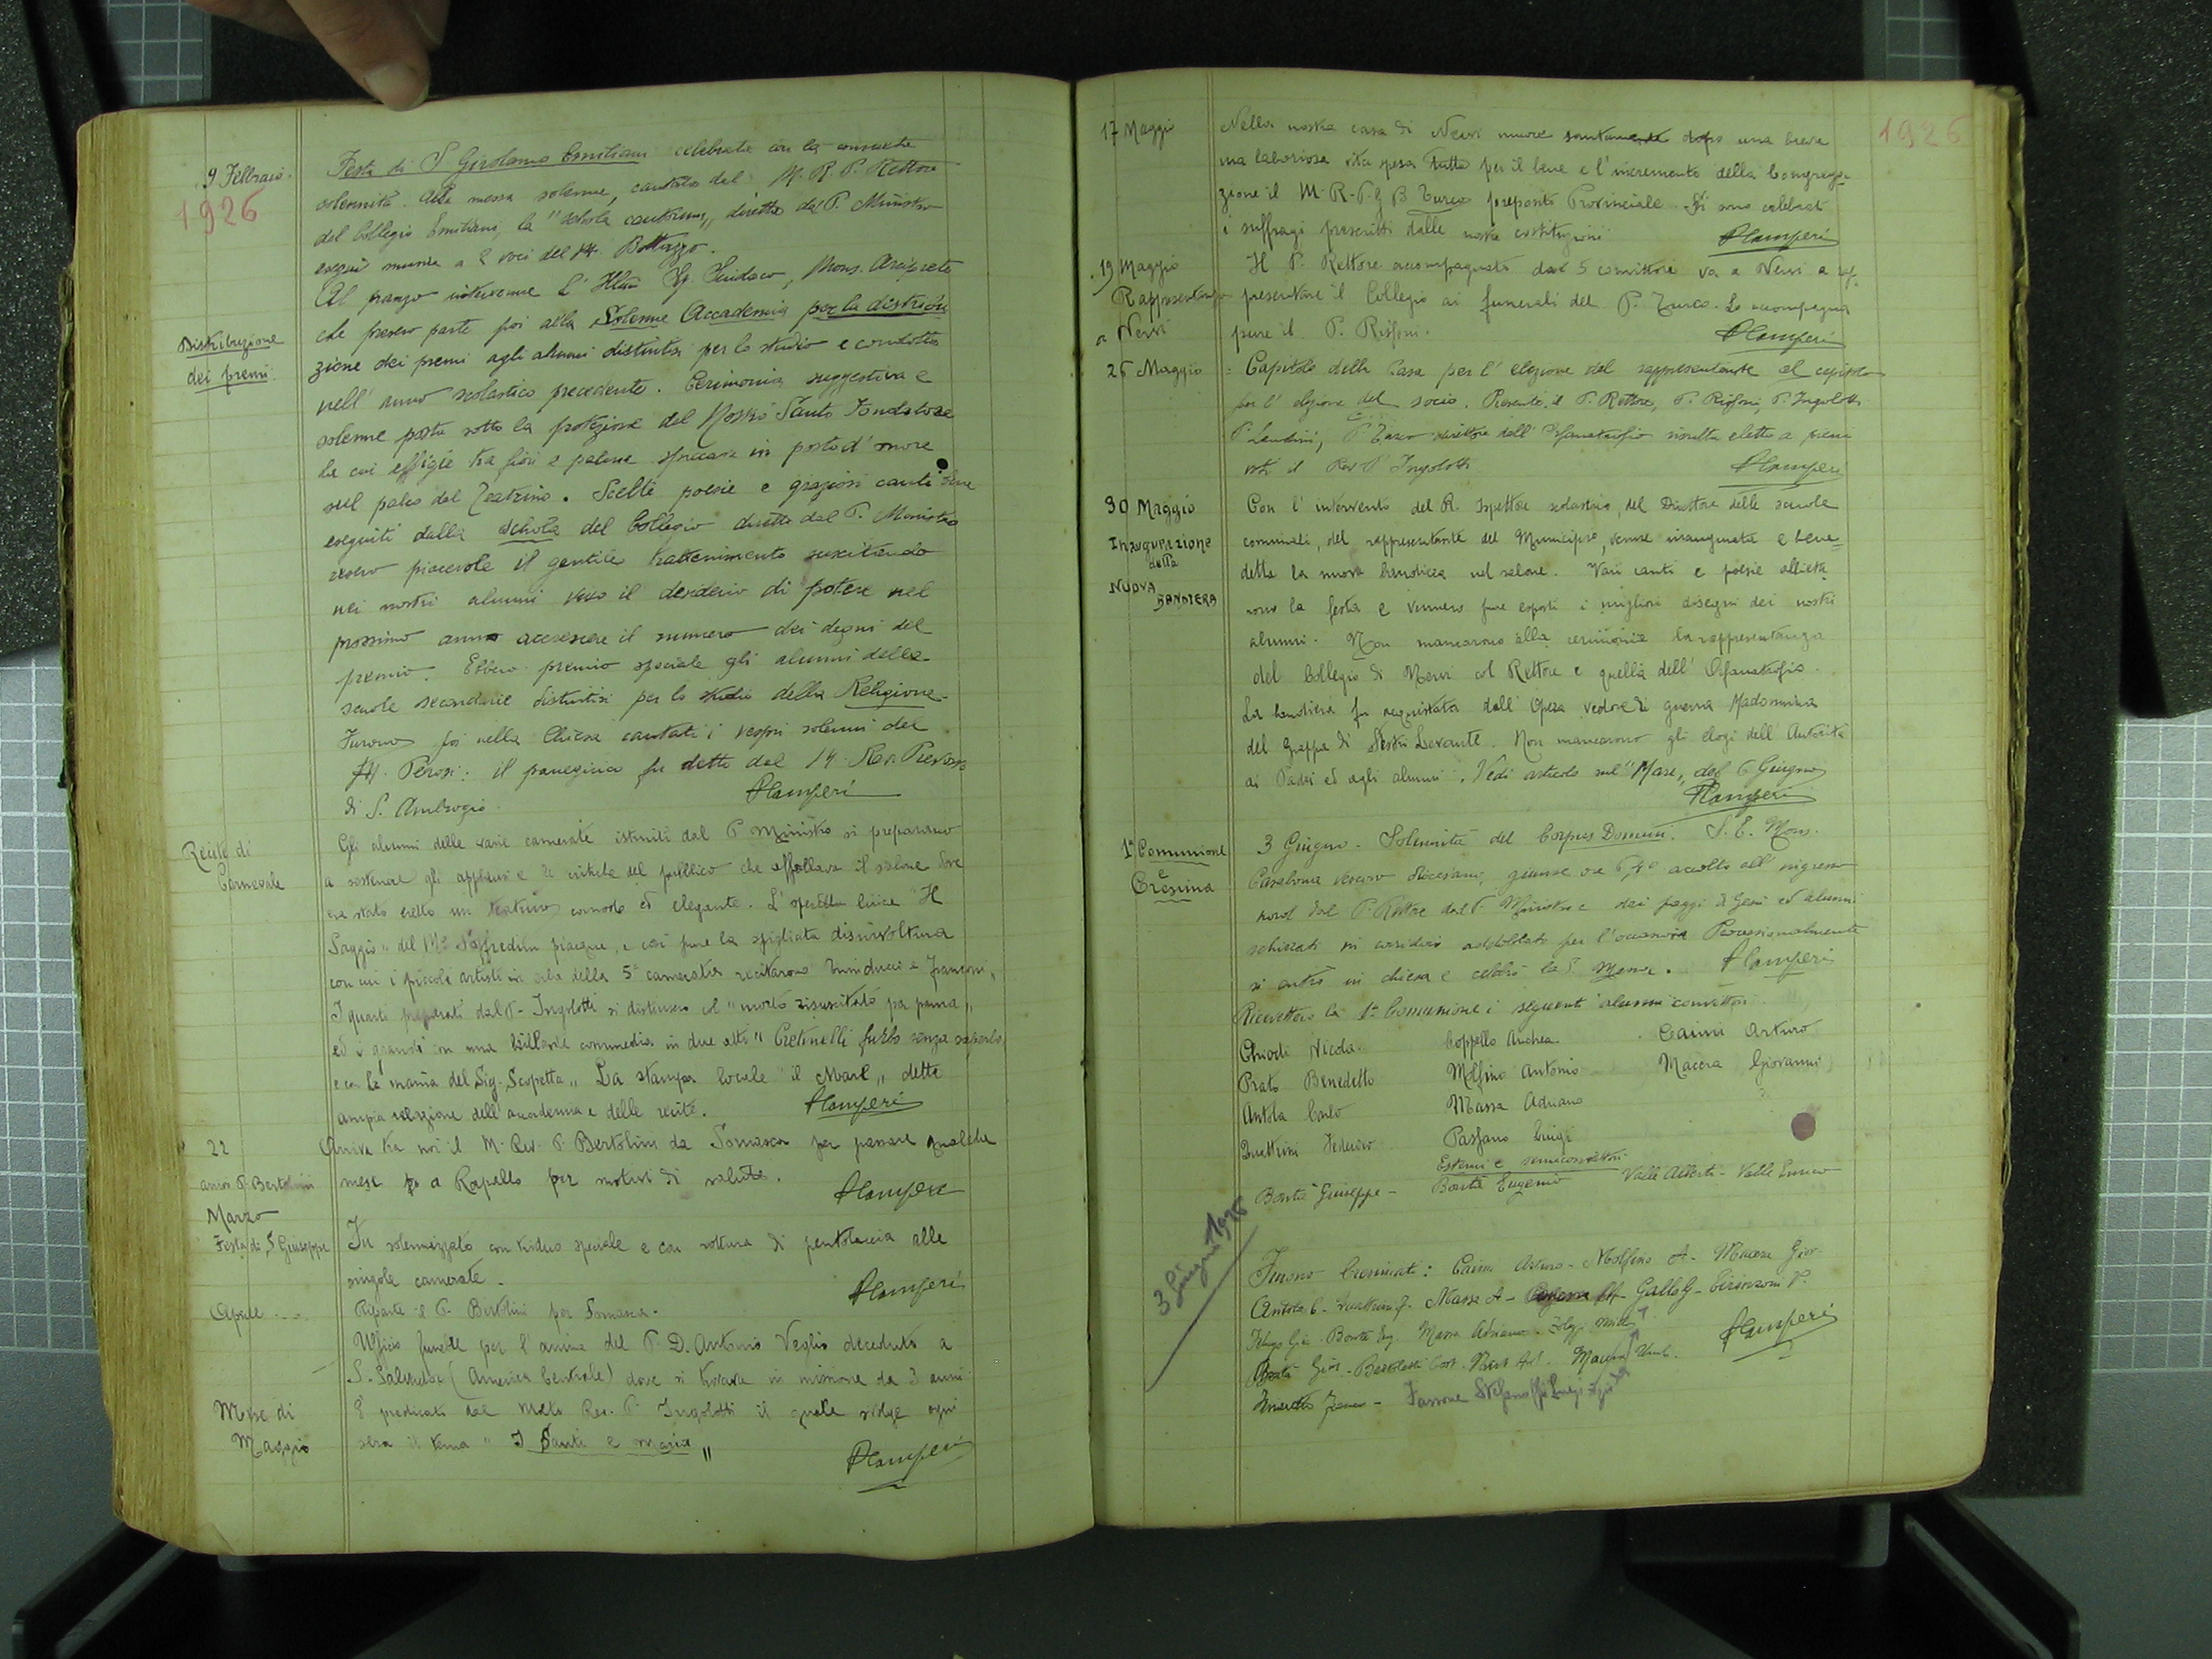 9 Febbraio
1926
Festa di S Girolamo Emiliani celebrata con la consueta
solennità. Alla messa solenne, cantata dal M. R. P. Rettore
del Collegio Emiliani, la "schola cantorum" diretta dal P. Ministro
eseguì musica a 2 voci del M. Bottazzo.
Al pranzo intervenne l'Ill.mo Sg. Sindaco, Mons. Arciprete
che presero parte poi alla Solenne Accademia per la distribu
Distribuzione
dei premi
zione dei premi agli alunni distintisi per lo studio e condotta
nell'anno scolastico precedente. Cerimonia suggestiva e
solenne posta sotto la protezione del Nostro Santo Fondatore
la cui effigie tra fiori e palme spiccava in posto d'onore
sul palco del Teatrino. Scelte poesie e graziosi canti bene
eseguiti dalla schola del Collegio diretta dal P. Ministro
resero piacevole il gentile trattenimento suscitando
nei nostri alunni vivo il desiderio di potere nel
prossimo anno accrescere il numero dei degni del
premio. Ebbero premio speciale gli alunni delle
scuole secondarie distintisi per lo studio della Religione.
Furono poi nella Chiesa cantati i vespri solenni del
M. Perosi: il panegirico fu detto dal M. Rev. Prevosto
di S. Ambrogio.
Recite di
Carnevale
Gli alunni delle varie camerate istruiti dal P. Ministro si prepararono
a sostenere gli applausi e le critiche del pubblico che affollava il salone dove
era stato eretto un teatrino comodo ed elegante. L'operetta lirica "Il
Saggio" del M° Soffredini piacque, e così pure la spigliata disinvoltura
con cui i piccoli artisti in erba della 5ª camerata recitarono
I quarti preparati dal P. Ingolotti si distinsero col "morto risuscitato per paura"
ed i grandi con una brillante commedia in due atti "Cretinelli furbo senza saperlo
e con la mania del Sig. Scopetta" La stampa locale "il Mare" dette
ampia relazione dell'accademia e delle recite.
22
arrivo P. Bertolini
Arriva tra noi il M. Rev. P. Bertolini da Somasca per passare qualche
mese a Rapallo per motivi di salute.
Marzo
Festa di S Giuseppe
Fu solennizzata con triduo speciale e con rottura di pentolaccia alle
singole camerate.
Aprile
Riparte il P. Bertolini per Somasca.
Ufficio funebre per l'anima del P. D. Antonio Veglio deceduto a
S. Salvador (America Centrale) dove si trovava in missione da 3 anni.
Mese di
Maggio
È predicato dal Molto Rev. P. Ingolotti il quale svolge ogni
sera il tema "I Santi e Maria"
1926
17 Maggio
Nella nostra casa di Nervi muore santamente dopo una breve
ma laboriosa vita spesa tutta per il bene e l'incremento della Congrega-
zione il M. R. P. G B Turco preposito Provinciale. Si sono celebrati
i suffragi prescritti dalle nostre costituzioni
19 Maggio
Rappresentanza
a Nervi
Il P. Rettore accompagnato da 5 convittori va a Nervi a rap-
presentare il Collegio ai funerali del P. Turco. Lo accompagna
pure il P. Rissoni.
26 Maggio
Capitolo della Casa per l'elezione del rappresentante al capitolo
per l'elezione del socio. Presenti il P. Rettore, P. Rissoni, P. Ingolotti
P. Landini, direttore dell'Orfanatrofio risulta eletto a pieni
voti il Rev. P. Ingolotti
30 Maggio
Inaugurazione
della
NUOVA
BANDIERA
Con l'intervento del R. Ispettore scolastico, del Direttore delle scuole
comunali, del rappresentante del Municipio, venne inaugurata e bene=
detta la nuova bandiera nel salone. Vari canti e poesie allieta
rono la festa e vennero pure esposti i migliori disegni dei nostri
alunni. Non mancarono alla cerimonia la rappresentanza
del Collegio di Nervi col Rettore e quella dell'Orfanatrofio.
La bandiera fu acquistata dall'Opera vedove di guerra Madonnina
del Grappa di Sestri Levante. Non mancarono gli elogi dell'Autorità
ai Padri ed agli alunni. Vedi articolo sul "Mare" del 6 Giugno
1ª Comunione
e
Cresima
3 Giugno - Solennità del Corpus Domini. S. E. Mons.
Casabona vescovo diocesano, giunse ore accolto all'ingresso
nord dal P. Rettore dal P. Ministro e dai paggi di Gesù ed alunni
schierati in corridoio addobbato per l'occasione Processionalmente
si entrò in chiesa e celebrò la S. Messa.
Ricevettero la 1ª Comunione i seguenti alunni convittori
Chiodi Nicola Coppello Andrea Caimi Arturo
Prato Benedetto Molfino Antonio Macera Giovanni
Antola Carlo Massa Adriano
Federico Passano Luigi
Esterni e semiconvittori
Giuseppe - Eugenio Valle Alberto - Valle Enrico
3 Giugno 1926
Furono Cresimati: Caimi Arturo - Molfino A - Macera Giov.
Antola C. - Massa A - Gallo G -
Massa Adriano
Stefano